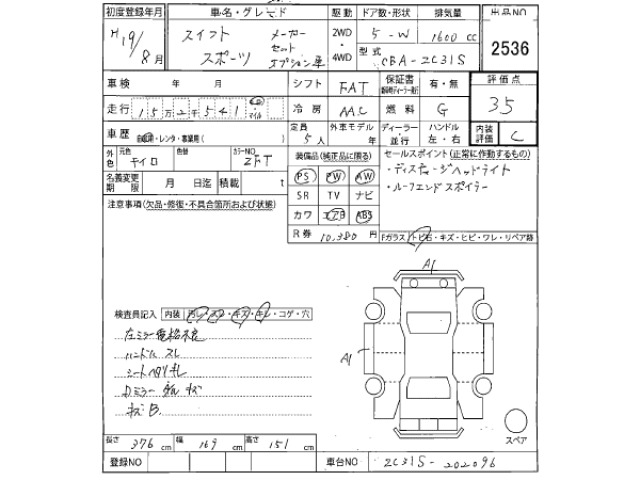 初度登録年月 車名・グレード 駆動 ドア数・形状 排気量 出品NO
H19/8月 スイフト スポーツ メーカーセットオプション車 2WD・4WD 5-W 1600cc 2536
型式 CBA-ZC31S
車検 年 月 シフト FAT 保証書 有・無 評価点
走行 15万2千541 マイル 冷房 AAC 燃料 G 35
車歴 自家用・レンタ・事業用( ) 定員 5人 外車モデル 年 ディーラー・並行 ハンドル 左・右 内装評価 C
外色 元色 キイロ 色替 カラーNO ZFT 装備品(純正品に限る) セールスポイント(正常に作動するもの)
名義変更期限 月 日迄 積載 t PS PW AW ・ディスチャージヘッドライト
SR TV ナビ ・ルーフエンドスポイラー
注意事項(欠品・修復・不具合箇所および状態) カワ エアB ABS
R券 10,380円 Fガラス トビ石・キズ・ヒビ・ワレ・リペア跡
A1
検査員記入 内装 汚レ・スレ・キズ・キレ・コゲ・穴
左ミラー電格不良
ハンドル スレ
A1
シートヘタリ キレ
キズB
スペア
長さ 376cm 幅 169cm 高さ 151cm
登録NO 車台NO ZC31S-202096